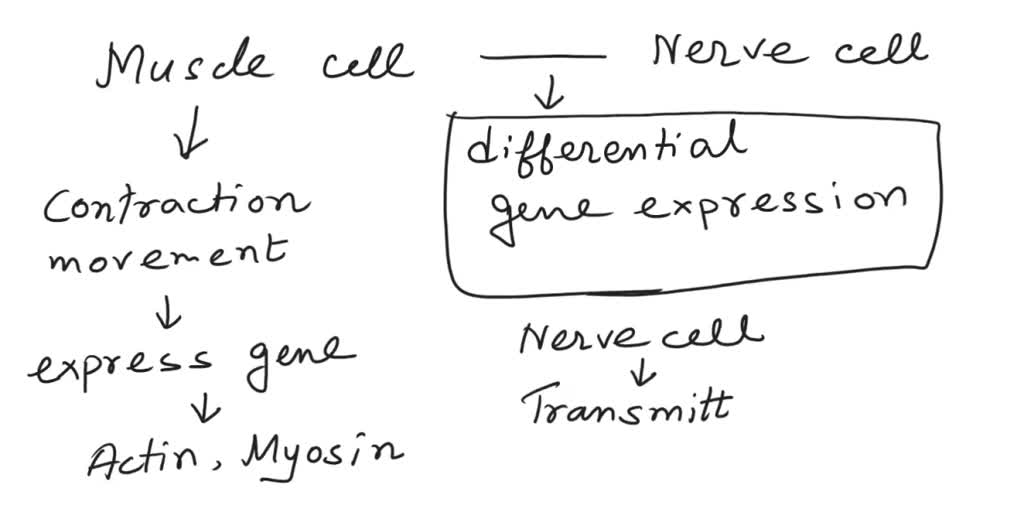 Muscle cell — Nerve cell
↓
↓
differential
gene expression
Contraction
movement
↓
express gene
↓
Actin, Myosin
Nerve cell
↓
Transmitt